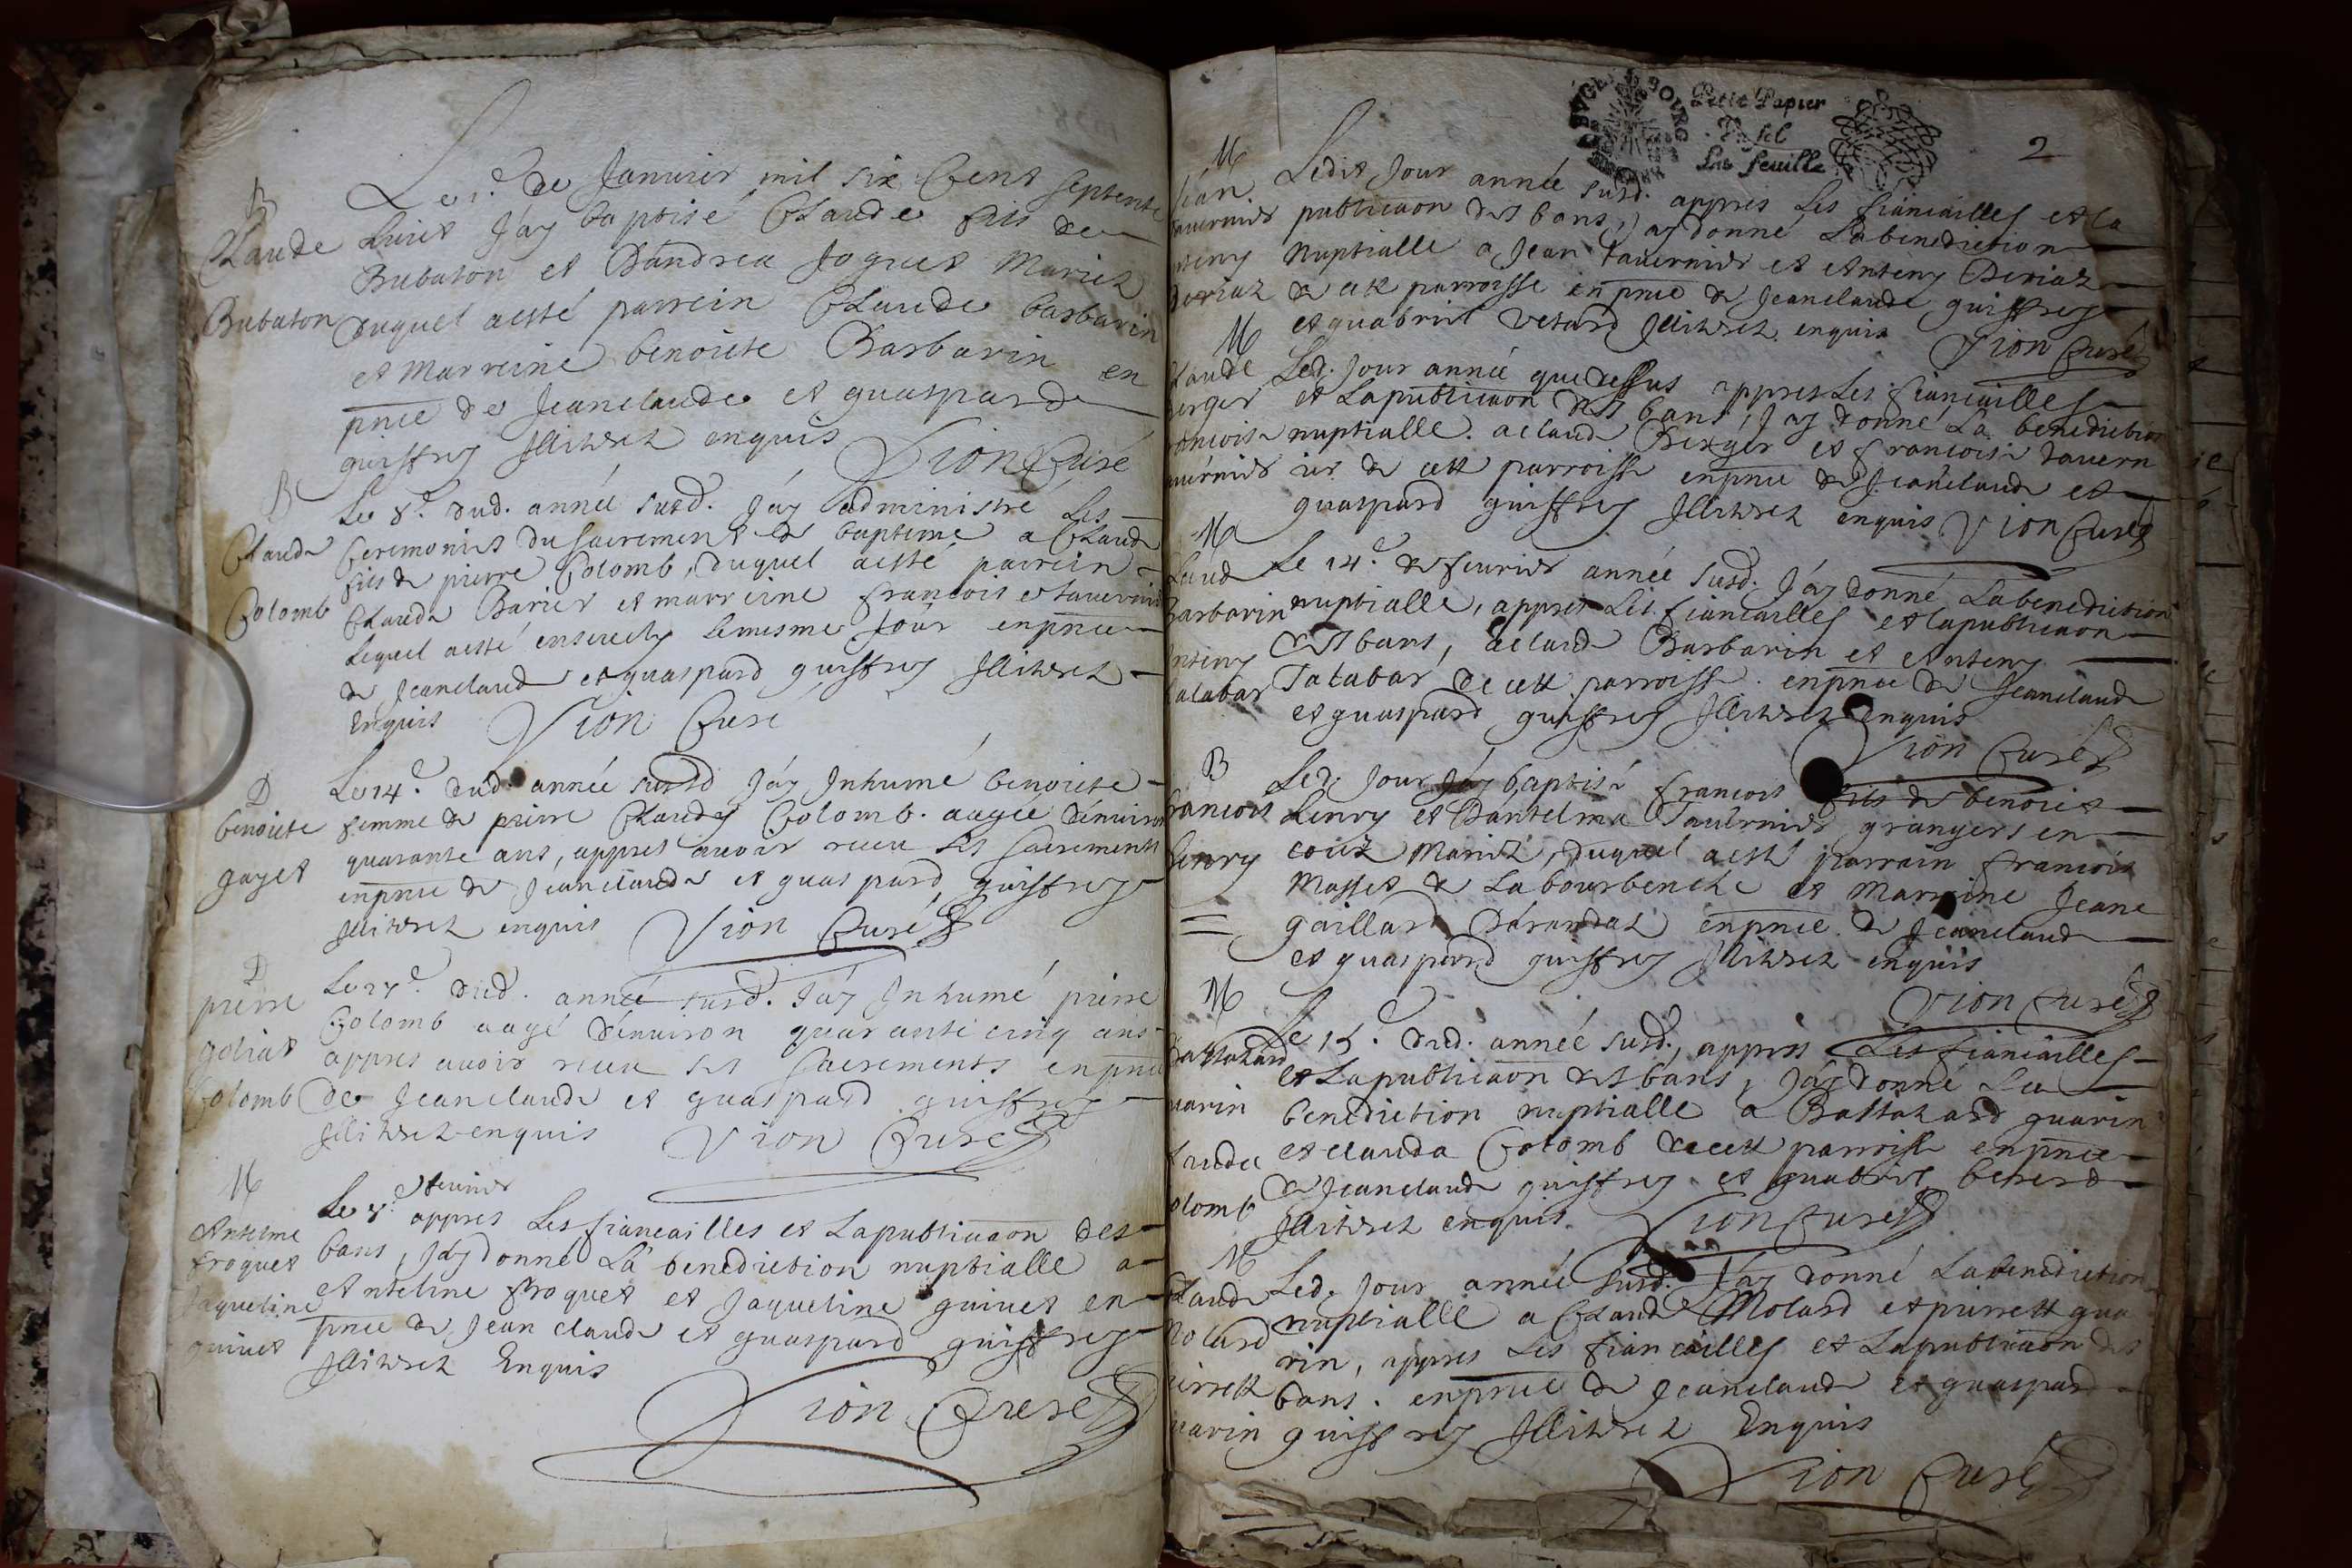 B
Claude
Bubaton
Le 1.e de Januier mil six Cent septente
huict J'ay baptisé Claude fils de
Bubaton et D'andrea Joguet Mariez
duquel a esté parrein Claude barbarin
et marreine benoiete Barbarin en
pnce de Jeanclaude et guaspard
guiffrey Illitrez enquis
Vion Curé
B
Claude
Colomb
Le 8.e dud. année susd. J'ay administré les
Ceremonies du sacrement de bapteme a Claude
fils de pierre Colomb, duquel a esté parrein
Claude Barier et marreine francoise tauernier
Lequel a esté enseuely le mesme Jour enpnce
de Jeanclaude et guaspard guiffrey Illitrez
Enquis Vion Curé
D
benoiete
gayet
Le 14.e dud. année susd J'ay Inhumé benoiete
femme de pierre Claudy Colomb. aagée d'enuiron
quarante ans, appres auoir receu les sacrements
enpnce de Jeanclaude et guaspard guiffrey
Illitrez enquis Vion Curé
D
pierre
goliat
Colomb
dud. année susd. J'ay Inhumé pierre
Colomb aagé d'enuiron quarante cinq ans
appres auoir receu ses sacrements enpnce
de Jeanclaude et guaspard guiffrey
Illitrez enquis Vion Curé
M
Antelme
froquet
Jaqueline
guinet
feurier
appres Les fiancailles et La publicaon des
bans, J'ay donné La benediction nuptialle a
Antelme froquet et Jaqueline guinet en
pnce de Jean claude et guaspard guiffrey
Illitrez Enquis
Vion Curé
BVGEY BOURG
Petit Papier
la feuille
2
M
Jean
tauernier
Anteny
Deriaz
Ledit Jour année susd. appres les fiancailles et la
publicaon des bans, J'ay donné La benediction
Nuptialle a Jean tauernier et Anteny Deriaz
de cette parroisse en pnce de Jeanclaude guiffrey
et guabriel Illitrez enquis
Vion Curé
M
Claude
berger
francoise
tauernier
Led. Jour année que dessus appres Les fiancailles
et La publicaon des bans, J'ay donné La benediction
nuptialle a claude Berger et francoise tauern
ier de cette parroisse enpnce de Jeanclaude et
guaspard guiffrey Illitrez enquis Vion Curé
M
Claude
Barbarin
Anteny
Talabar
Le 14.e de feurier année susd. J'ay donné La benediction
nuptialle, appres Les fiancailles et la publicaon
des bans, a claude Barbarin et Anteny
Talabar de cette parroisse enpnce de Jeanclaude
et guaspard guiffrey Illitrez enquis
Vion Curé
B
francois
henry
Led. Jour J'ay baptisé francois fils de benoiet
henry et D'antelma Tauernier grangers en
Mariez, duquel a esté parrain francois
Masset de La bourbenche et Marreine Jeane
gaillard D'arandaz enpnce de Jeanclaude
et guaspard guiffrey Illitrez enquis
Vion Curé
M
Baltazard
guarin
Clauda
Colomb
Le 15.e dud. année susd., appres Les fiancailles
et La publicaon des bans, J'ay donné La
benediction nuptialle a Baltazard guarin
et clauda Colomb de cette parroisse enpnce
de Jeanclaude guiffrey et guabriel
Illitrez enquis. Vion Curé
M
Claude
Molard
pierrette
guarin
Led. Jour année susd. J'ay donné La benediction
nuptialle a Claude Molard et pierrette gua
rin, appres Les fiancailles et La publicaon des
bans. enpnce de Jeanclaude et guaspard
guiffrey Illitrez Enquis
Vion Curé